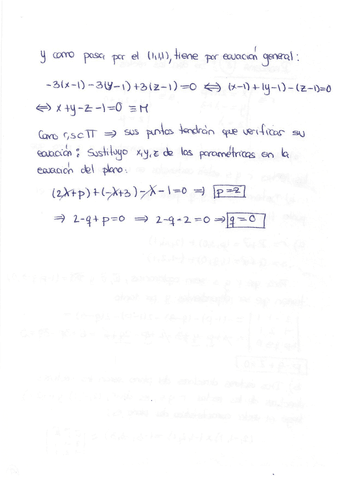 y como pasa por el (1,1,1), tiene por ecuación general:
-3(x-1)-3(y-1)+3(z-1)=0 ⟺ (x-1)+(y-1)-(z-1)=0
⟺ x+y-z-1=0 ≡ Π
Como r,s⊂Π ⟹ sus puntos tendrán que verificar su
ecuación; Sustituyo x,y,z de las paramétricas en la
ecuación del plano:
(2λ+p)+(-λ+3)-λ-1=0 ⟹ p=-2
⟹ 2-q+p=0 ⟹ 2-q-2=0 ⟹ q=0